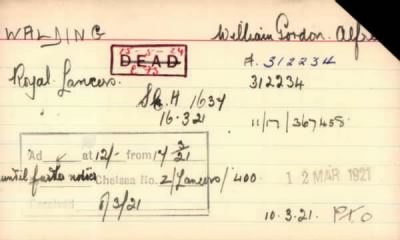 WALDING William Gordon. Alfre
15-5-24
DEAD
A. 312234
Royal Lancers.
312234
SC. H 1634
16.3.21
11/17/367458
Ad at 12/- from 14 3/21
until further notice Chelsea No. 2/Lancers/400
12 MAR 1921
Received 8/3/21
10.3.21. PTO